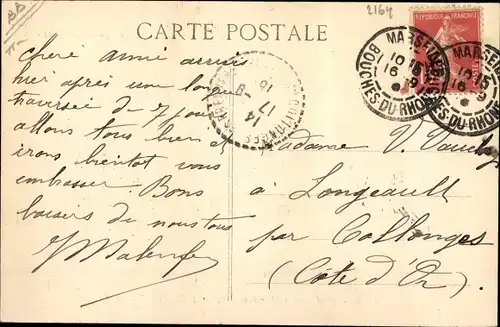 BB
2164
CARTE POSTALE
REPUBLIQUE FRANÇAISE
MARSEILLE
10 15
16 - 9
BOUCHES-DU-RHONE
MARSEILLE
10 15
16 - 9
BOUCHES-DU-RHONE
Chère amie arrivés
hier après une longue
traversée de 7 jours
allons tous bien
irons bientôt vous
embrasser. Bons
baisers de nous tous
Madame V.
à Longeault
par Collonges
(Côte d'Or)